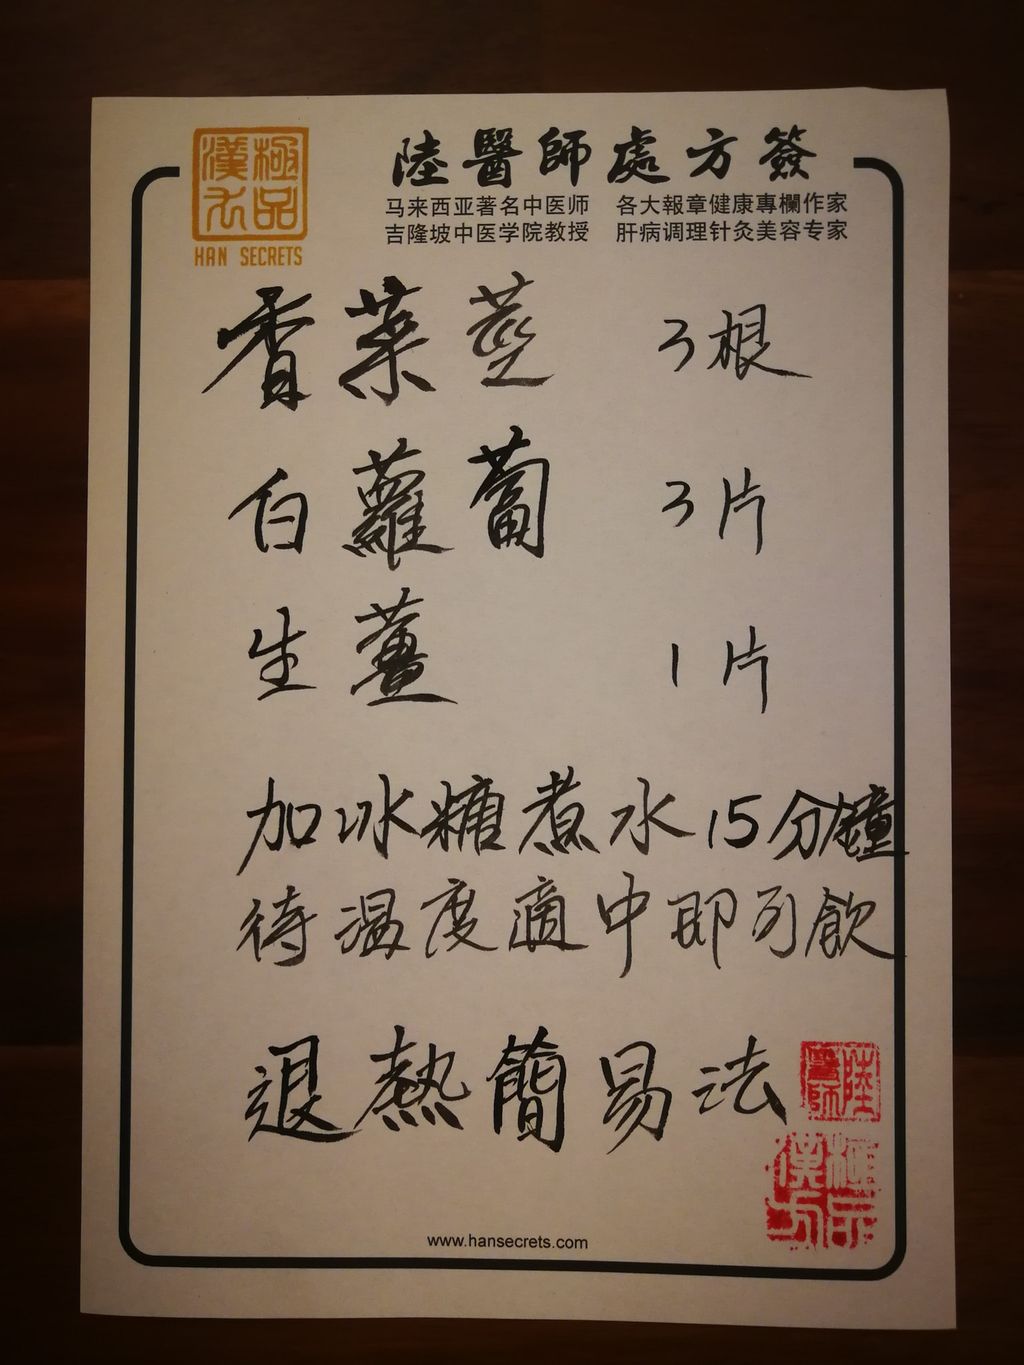 極品
漢方
HAN SECRETS
陸醫師處方簽
马来西亚著名中医师 各大報章健康專欄作家
吉隆坡中医学院教授 肝病调理针灸美容专家
香菜莖 3根
白蘿蔔 3片
生薑 1片
加冰糖煮水15分鐘
待温度適中即可飲
退熱簡易法
陸醫師
極品
漢方
www.hansecrets.com